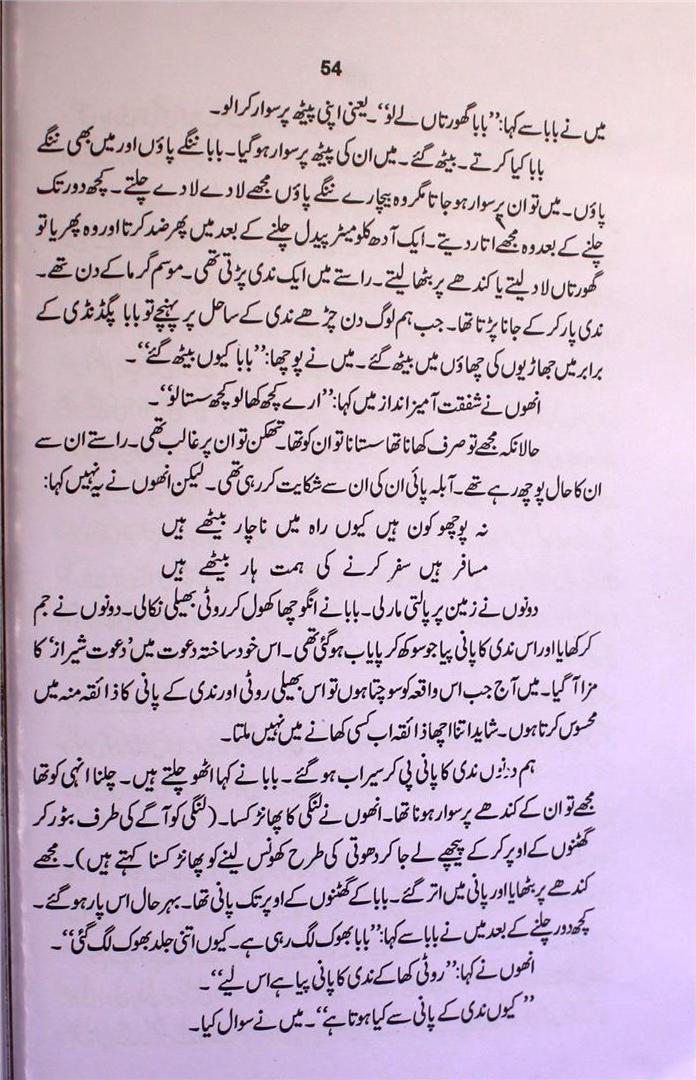 54
میں نے بابا سے کہا: ”بابا گھورتاں لے لو“۔ یعنی اپنی پیٹھ پر سوار کرالو۔
بابا کیا کرتے۔ بیٹھ گئے۔ میں ان کی پیٹھ پر سوار ہو گیا۔ بابا ننگے پاؤں اور میں بھی ننگے
پاؤں۔ میں تو ان پر سوار ہو جاتا مگر وہ بیچارے ننگے پاؤں مجھے لادے لادے چلتے۔ کچھ دور تک
چلنے کے بعد وہ مجھے اتار دیتے۔ ایک آدھ کلومیٹر پیدل چلنے کے بعد میں پھر ضد کرتا اور وہ پھر یا تو
گھورتاں لاد لیتے یا کندھے پر بٹھا لیتے۔ راستے میں ایک ندی پڑتی تھی۔ موسم گرما کے دن تھے۔
ندی پار کر کے جانا پڑتا تھا۔ جب ہم لوگ دن چڑھے ندی کے ساحل پر پہنچے تو بابا پگڈنڈی کے
برابر میں جھاڑیوں کی چھاؤں میں بیٹھ گئے۔ میں نے پوچھا: ”بابا کیوں بیٹھ گئے“۔
انھوں نے شفقت آمیز انداز میں کہا: ”ارے کچھ کھا لو کچھ سستا لو“۔
حالانکہ مجھے تو صرف کھانا تھا سستانا تو ان کو تھا۔ تھکن تو ان پر غالب تھی۔ راستے ان سے
ان کا حال پوچھ رہے تھے۔ آبلہ پائی ان کی ان سے شکایت کر رہی تھی۔ لیکن انھوں نے یہ نہیں کہا:
نہ پوچھو کون ہیں کیوں راہ میں ناچار بیٹھے ہیں
مسافر ہیں سفر کرنے کی ہمت ہار بیٹھے ہیں
دونوں نے زمین پر پالتی مار لی۔ بابا نے انگوچھا کھول کر روٹی بھیلی نکالی۔ دونوں نے جم
کر کھایا اور اس ندی کا پانی پیا جو سوکھ کر پایاب ہو گئی تھی۔ اس خود ساختہ دعوت میں ’دعوت شیراز‘ کا
مزا آ گیا۔ میں آج جب اس واقعہ کو سوچتا ہوں تو اس بھیلی روٹی اور ندی کے پانی کا ذائقہ منہ میں
محسوس کرتا ہوں۔ شاید اتنا اچھا ذائقہ اب کسی کھانے میں نہیں ملتا۔
ہم دونوں ندی کا پانی پی کر سیراب ہو گئے۔ بابا نے کہا اٹھو چلتے ہیں۔ چلنا انہی کو تھا
مجھے تو ان کے کندھے پر سوار ہونا تھا۔ انھوں نے لنگی کا پھانڑ کسا۔ (لنگی کو آگے کی طرف بٹور کر
گھٹنوں کے اوپر کر کے پیچھے لے جا کر دھوتی کی طرح کھونس لینے کو پھانڑ کسنا کہتے ہیں)۔ مجھے
کندھے پر بٹھایا اور پانی میں اتر گئے۔ بابا کے گھٹنوں کے اوپر تک پانی تھا۔ بہر حال اس پار ہو گئے۔
کچھ دور چلنے کے بعد میں نے بابا سے کہا: ”بابا بھوک لگ رہی ہے۔ کیوں اتنی جلد بھوک لگ گئی“۔
انھوں نے کہا: ”روٹی کھا کے ندی کا پانی پیا ہے اس لیے“۔
”کیوں ندی کے پانی سے کیا ہوتا ہے“۔ میں نے سوال کیا۔